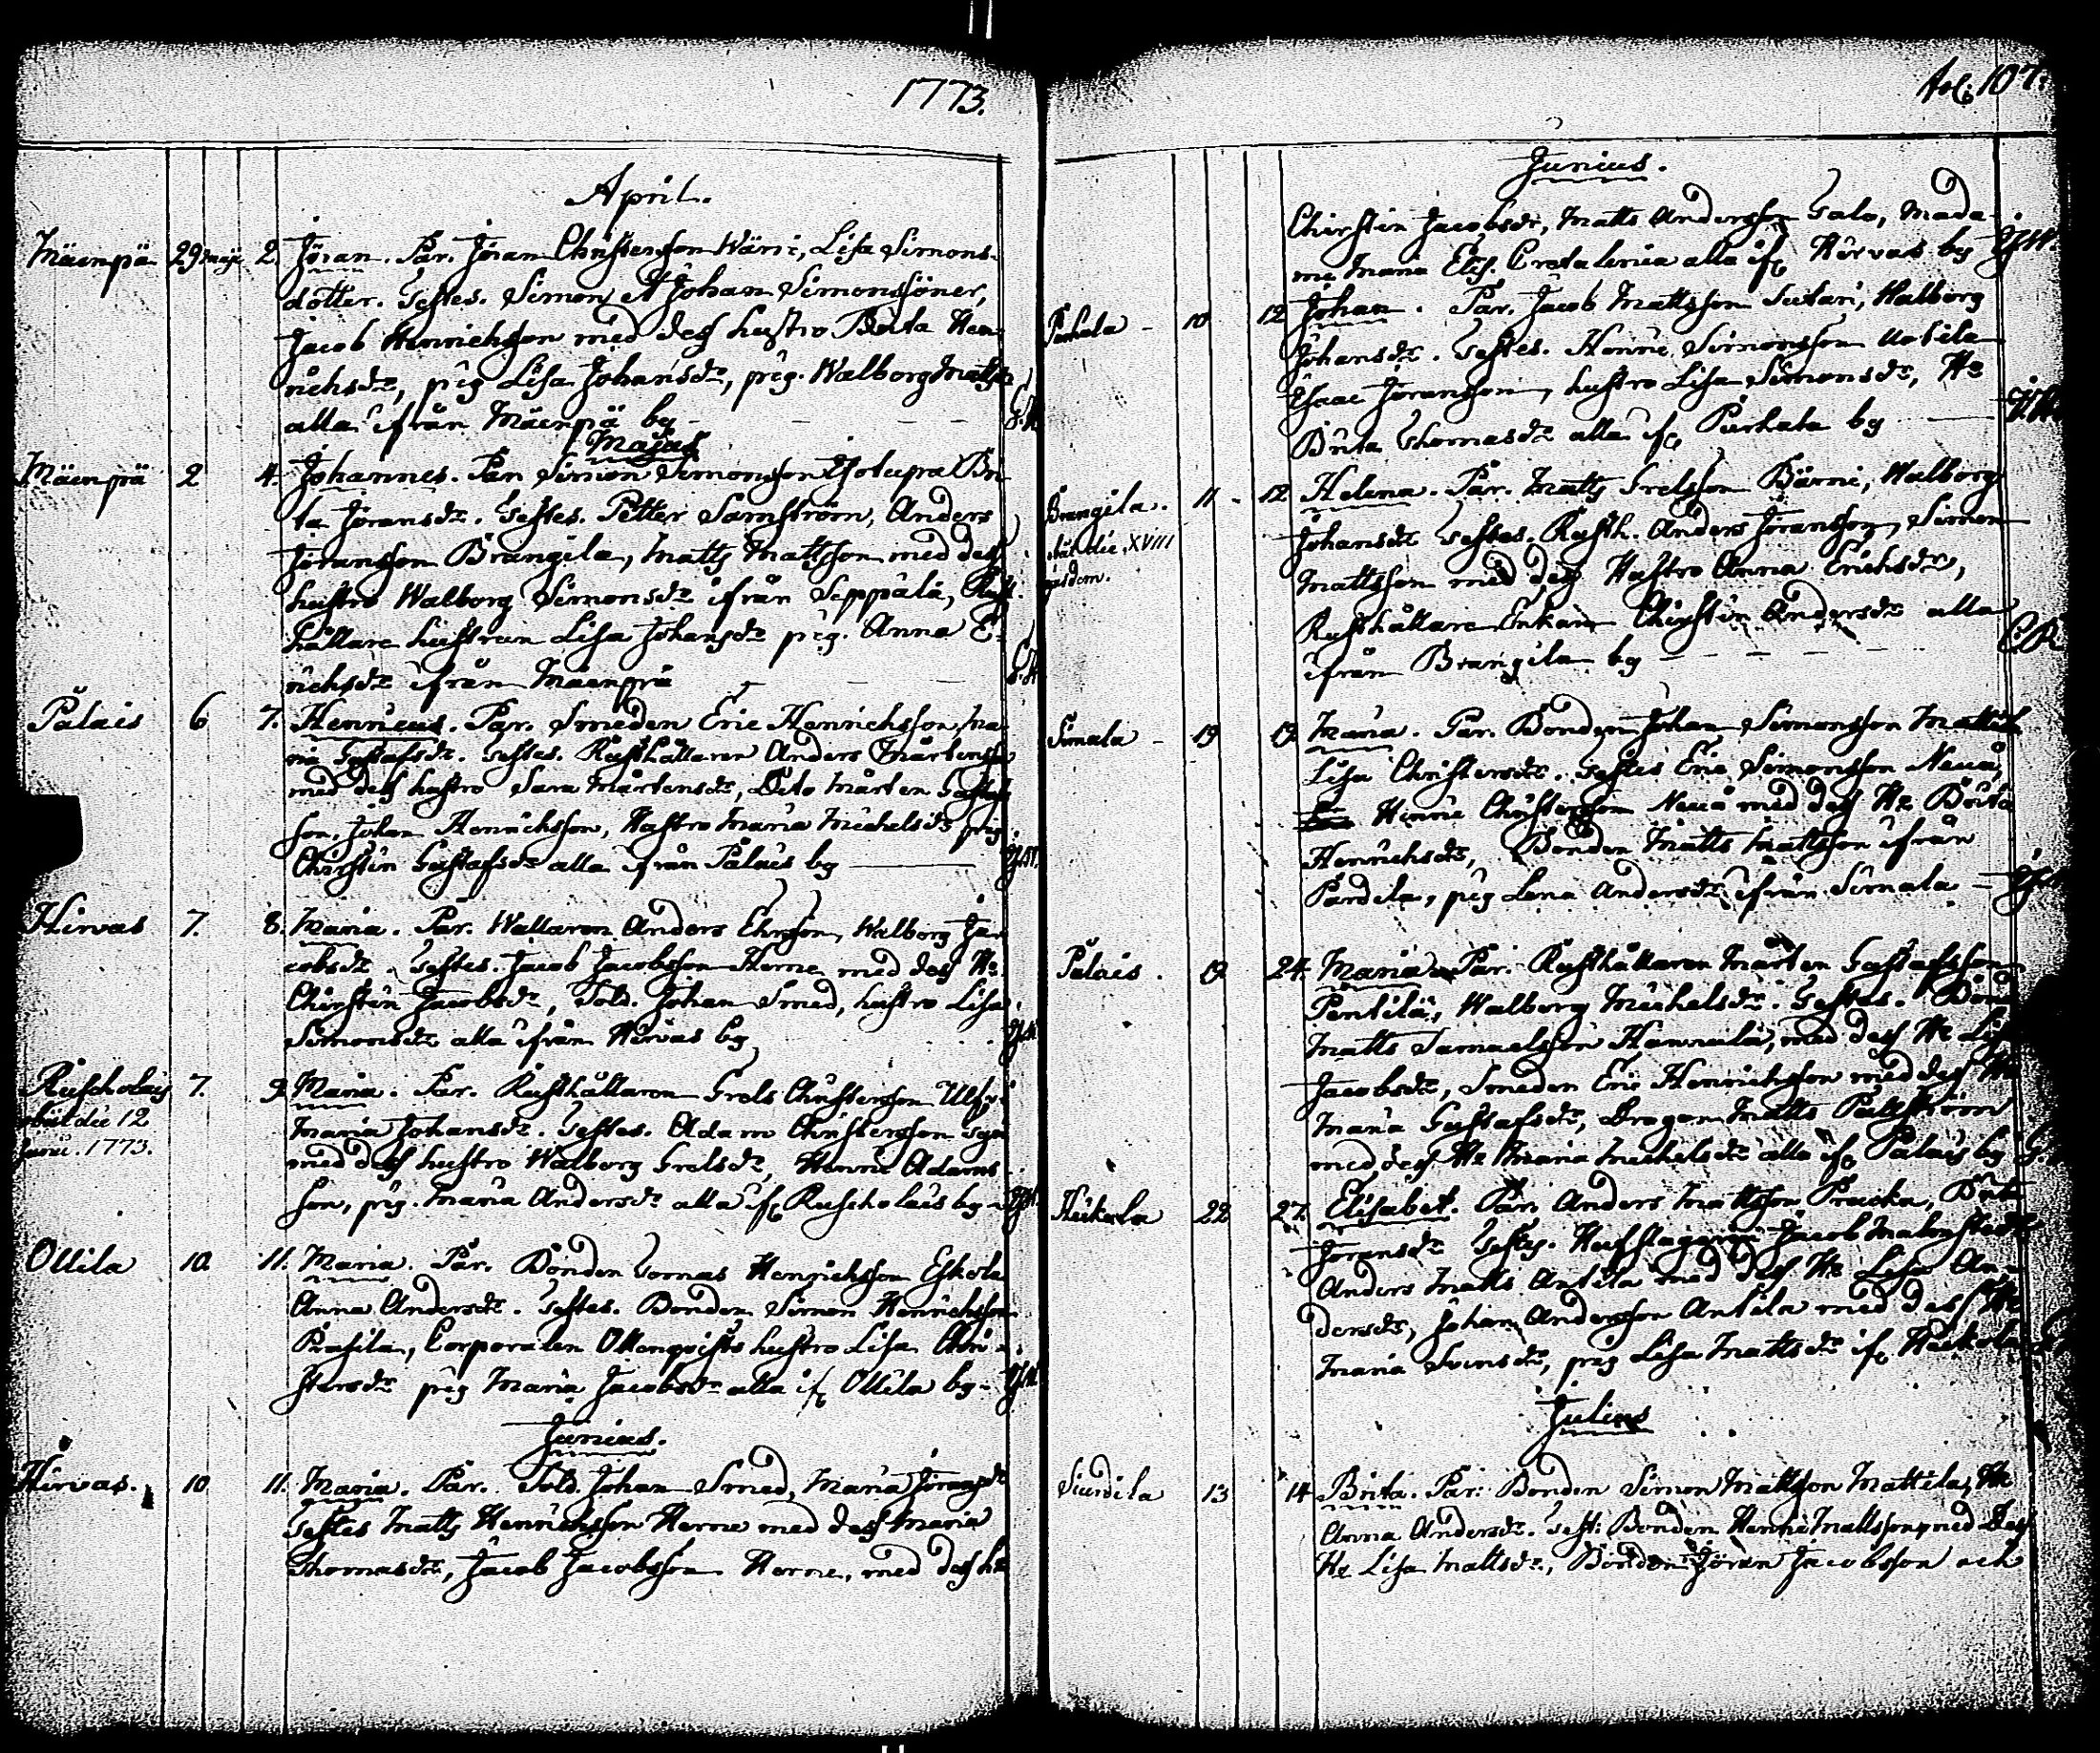 1773.
April.
Mäenpä 29 Maji 2. Jöran. Par. Jöran Christersson Wäri, Lisa Simons-
dotter. Testes. Simon, Johan Simonssöner,
Jacob Henrichsson med dess hustro Brita Hen-
richsdr, pig Lisa Johansdr, pig. Walborg Matts
alla ifrån Mäenpä by
Majus
Mäenpä 2 4. Johannes. Par Simon Simonsson Bri-
ta Jöransdr. Testes. Petter Samström, Anders
Jöransson Brangila, Matts Mattsson med dess
hustro Walborg Simonsdr ifrån Seppälä, Rust-
hållare hustrun Lisa Johansdr pig. Anna E-
richsdr ifrån Mäenpä
Pälais 6 7. Henricus. Par. Smeden Eric Henrichsson, Ma-
ria Gustafsdr. Testes. Rusthållaren Anders Mårtensson
med dess hustro Sara Mårtensdr, Dito Mårten Gustafs
son, Johan Henrichsson, Hustro Maria Michelsdr pig
Chirstin Gustafsdr alla ifrån Pälais by
Hirvas 7. 8. Maria. Par. Wallaren Anders Ehrsson, Walborg Ja-
cobsdr. Testes. Jacob Jacobsson Herne med dess Hr
Chirstin Jacobsdr, Sold. Johan Smed, hustro Lisa
Simonsdr alla ifrån Hirvas by
Ruscholais 7. 9. Maria. Par. Rusthållaren Grels Christersson
obiit die 12 Maria Johansdr. Testes. Adam Christersson
Junii. 1773. med dess hustro Walborg Grelsdr, Henric Adams
son, pig. Maria Andersdr alla if. Ruscholais by
Ollila 10. 11. Maria. Par. Bonden Tomas Henrichsson Eskola
Anna Andersdr. Testes. Bonden Simon Henrichsson
Prasila, Corporalen Ollenqvists hustro Lisa Chri-
stersdr pig Maria Jacobsdr alla if. Ollila by
Junius.
Hirvas. 10. 11. Maria. Par. Sold. Johan Smed, Maria Jöransdr
Testes Matts Henrichsson Herne med dess Maria
Thomasdr, Jacob Jacobsson Herne, med dess hr
Fol. 107.
Junius.
Chirstin Jacobsdr, Matts Andersson Talo, Mada-
me Maria Elis. alla if. Hirvas by
Purhala 10 12 Johan. Par. Jacob Mattsson Sutari, Walborg
Johansdr. Testes. Henric Simonsson
Esaac Jöransson, hustro Lisa Simonsdr, Hr
Brita Thomasdr alla if. Purhala by
Brangila. 11 12 Helena. Par. Matts Grelsson Bärni, Walborg
obiit die XVIII Johansdr Testes. Rusth. Anders Jöransson, Simon
ejusdem. Mattsson med dess Hustro Anna Erichsdr,
Rusthållare Enkan Chirstin Andersdr alla
ifrån Brangila by C.R.
Simala 19 19 Maria. Par. Bonden Johan Simonsson Mattila
Lisa Christersdr. Testes Eric Simonsson
Henric Christersson med dess Hr Brita
Henrichsdr, Bonden Matts Mattsson ifrån
Pardila, pig Lena Andersdr ifrån Simala
Pälais. 19 24. Maria. Par. Rusthållaren Mårten Gustafsson
Pentilä, Walborg Michelsdr. Testes. Bond
Matts Samuelsson Hannula, med dess Hr Lisa
Jacobsdr, Smeden Eric Henrichsson med dess Hr
Maria Gustafsdr, Dragon Matts Pallström
med dess Hr Maria Michelsdr alla if. Pälais by
Heikola 22 27. Elisabet. Par. Anders Mattsson Pracka, Brita
Jöransdr Testes. Hofslagaren Jacob
Anders Matts Antila med dess Hr Lisa An-
dersdr, Johan Andersson Antila med dess Hr
Maria Svensdr, pig Lisa Mattsdr if. Heikola
Julius
Siurdila 13 14 Brita. Par: Bonden Simon Mattsson Mattila, Hr
Anna Andersdr. Test: Bonden Henric Mattsson med Dess
Hr Lisa Mattsdr, Bonden Jöran Jacobsson och